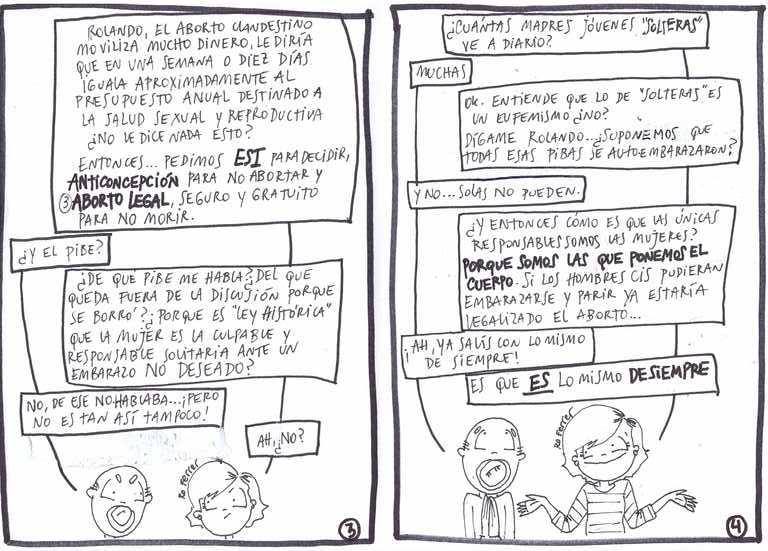 ROLANDO, EL ABORTO CLANDESTINO
MOVILIZA MUCHO DINERO, LE DIRÍA
QUE EN UNA SEMANA O DIEZ DÍAS
IGUALA APROXIMADAMENTE AL
PRESUPUESTO ANUAL DESTINADO A
LA SALUD SEXUAL Y REPRODUCTIVA
¿NO LE DICE NADA ESTO?
ENTONCES... PEDIMOS ESI PARA DECIDIR,
ANTICONCEPCIÓN PARA NO ABORTAR Y
ABORTO LEGAL, SEGURO Y GRATUITO
PARA NO MORIR.
¿Y EL PIBE?
¿DE QUÉ PIBE ME HABLA? ¿DEL QUE
QUEDA FUERA DE LA DISCUSIÓN PORQUE
SE BORRÓ? ¿PORQUE ES "LEY HISTÓRICA"
QUE LA MUJER ES LA CULPABLE Y
RESPONSABLE SOLITARIA ANTE UN
EMBARAZO NO DESEADO?
NO, DE ESE NO HABLABA... ¡PERO
NO ES TAN ASÍ TAMPOCO!
AH, ¿NO?
Ro Ferrer
3
¿CUÁNTAS MADRES JÓVENES "SOLTERAS"
VE A DIARIO?
MUCHAS
OK. ENTIENDE QUE LO DE "SOLTERAS" ES
UN EUFEMISMO ¿NO?
DÍGAME ROLANDO... ¿SUPONEMOS QUE
TODAS ESAS PIBAS SE AUTOEMBARAZARON?
Y NO... SOLAS NO PUEDEN.
¿Y ENTONCES CÓMO ES QUE LAS ÚNICAS
RESPONSABLES SOMOS LAS MUJERES?
PORQUE SOMOS LAS QUE PONEMOS EL
CUERPO. SI LOS HOMBRES CIS PUDIERAN
EMBARAZARSE Y PARIR YA ESTARÍA
LEGALIZADO EL ABORTO...
¡AH, YA SALÍS CON LO MISMO
DE SIEMPRE!
ES QUE ES LO MISMO DE SIEMPRE
Ro Ferrer
4